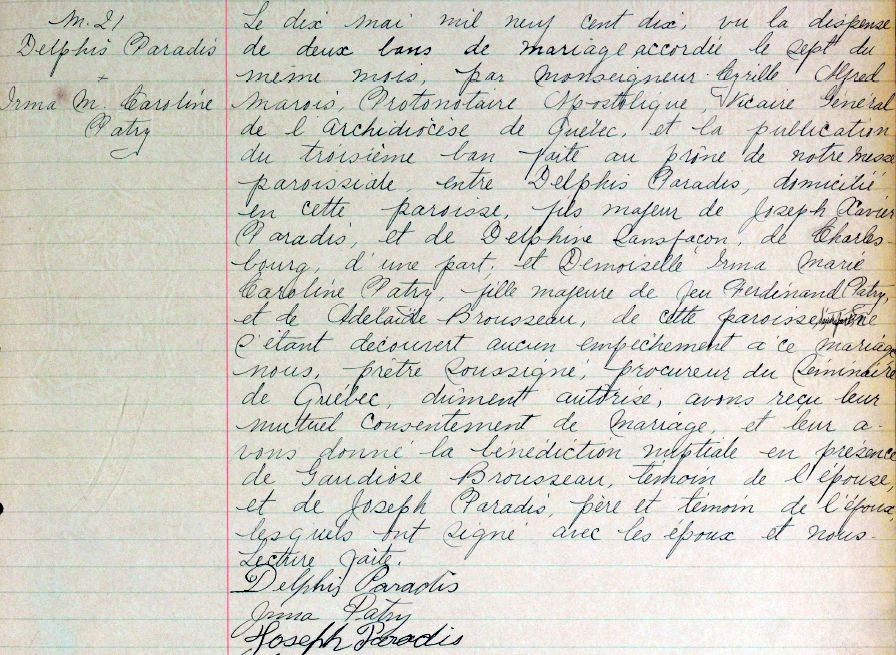 M. 21
Delphis Paradis
+
Irma M. Caroline
Patry
Le dix mai mil neuf cent dix, vu la dispense
de deux bans de mariage accordée le sept du
même mois, par Monseigneur Cyrille Alfred
Marois, Protonotaire Apostolique, Vicaire Général
de l'Archidiocèse de Québec, et la publication
du troisième ban faite au prône de notre messe
paroissiale, entre Delphis Paradis, domicilié
en cette paroisse, fils majeur de Joseph Xavier
Paradis, et de Delphine Sansfaçon, de Charles-
bourg, d'une part; et Demoiselle Irma Marie
Caroline Patry, fille majeure de feu Ferdinand Patry,
et de Adelaïde Brousseau, de cette paroisse, ne
s'étant découvert aucun empêchement à ce mariage
nous, prêtre soussigné, procureur du Séminaire
de Québec, dûment autorisé, avons reçu leur
mutuel consentement de mariage, et leur a-
vons donné la bénédiction nuptiale en présence
de Gaudiose Brousseau, témoin de l'épouse,
et de Joseph Paradis, père et témoin de l'époux
lesquels ont signé avec les époux et nous-
Lecture faite.
Delphis Paradis
Irma Patry
Joseph Paradis